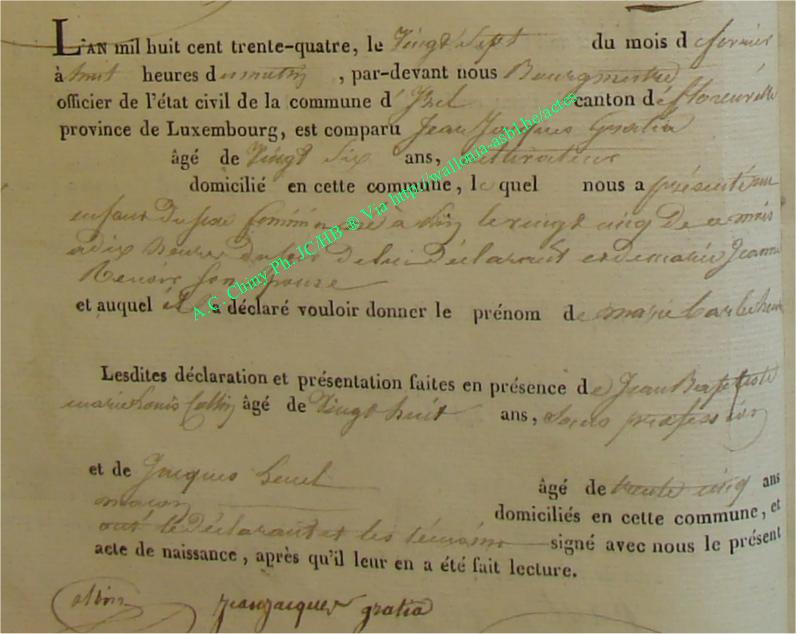 L'AN mil huit cent trente-quatre, le Vingt Sept du mois d e fevrier
à huit heures du matin, par-devant nous Bourgmestre
officier de l'état civil de la commune d'Izel canton de florenville
province de Luxembourg, est comparu Jean Jacques Gratia
âgé de Vingt Six ans, Cultivateur
domicilié en cette commune, lequel nous a présenté un
enfant du sexe féminin né à le vingt cinq de ce mois
à dix heures du de lui Déclarant et de marie Jeanne
Renoir Son épouse
et auquel il a déclaré vouloir donner le prénom de marie
Lesdites déclaration et présentation faites en présence de Jean Baptiste
marie Louis Collin âgé de Vingt huit ans, Sans profession
et de Jacques âgé de trente cinq ans
maçon domiciliés en cette commune, et
ont le Déclarant et les témoins signé avec nous le présent
acte de naissance, après qu'il leur en a été fait lecture.
jean jacques gratia
A.C. Chiny Ph. JC/HB ® Via http://wallonia-asbl.be/actes